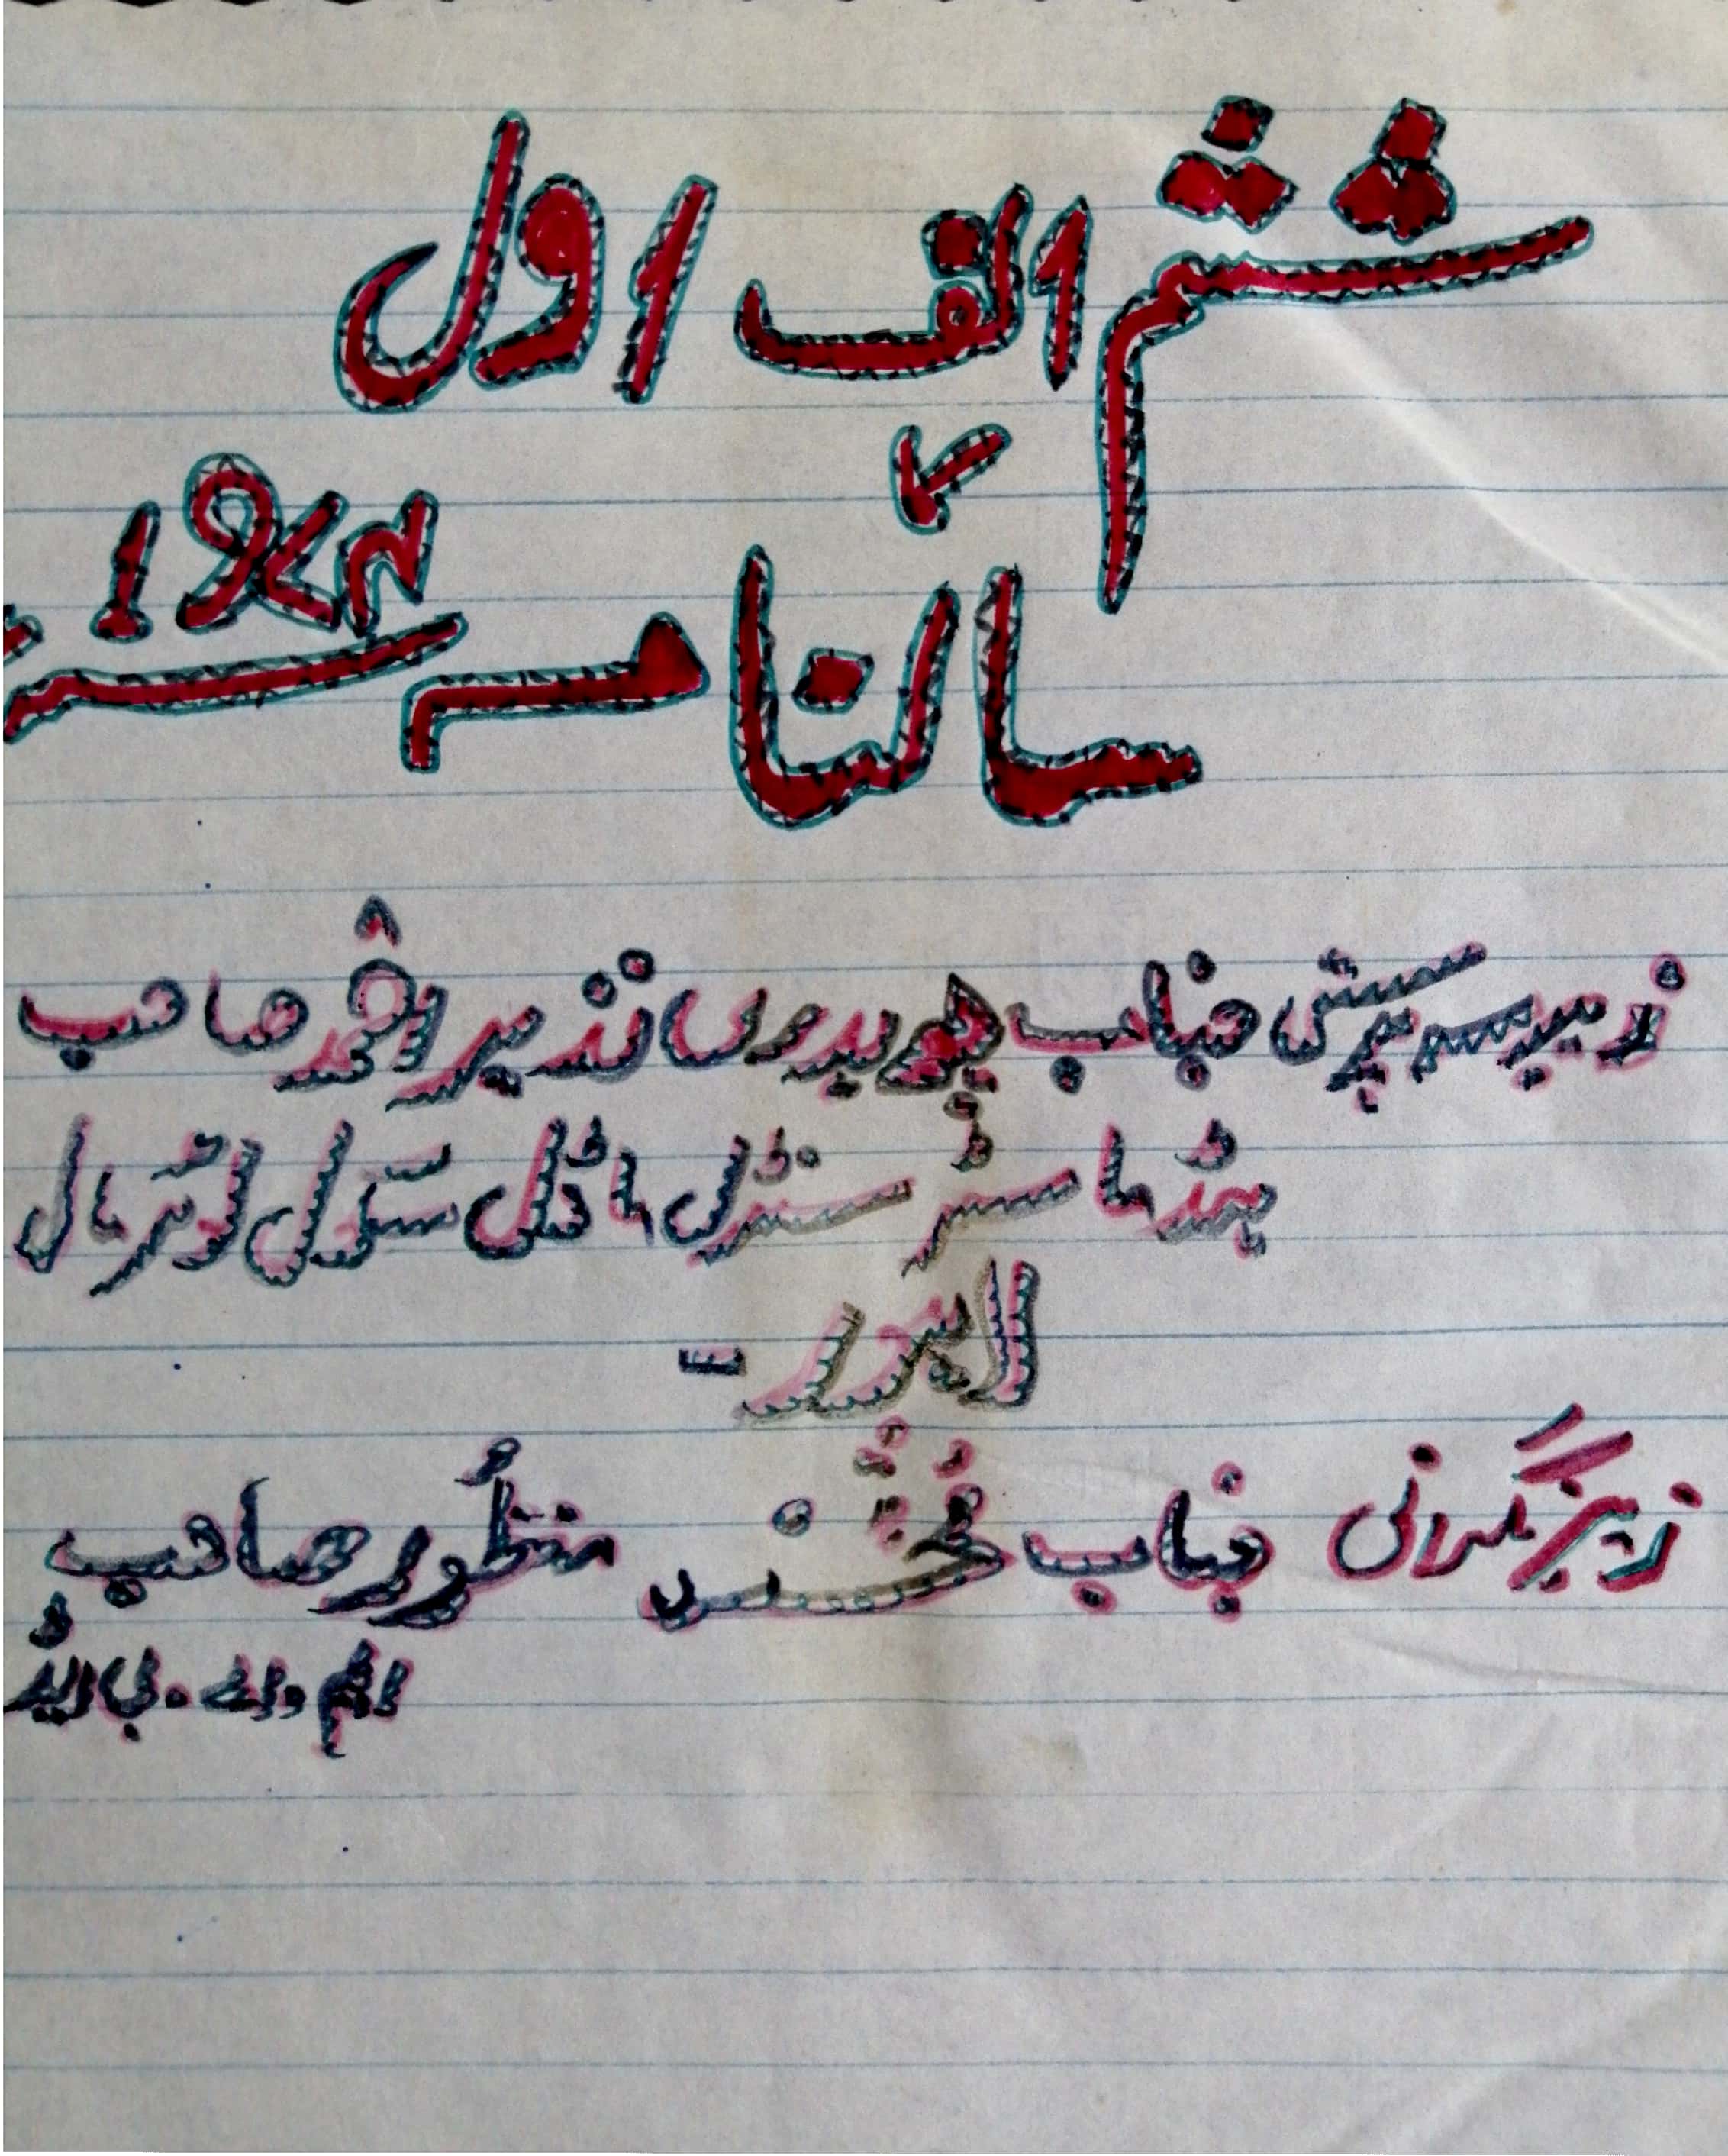 ششم الف اول
کا
سالنامہ ۱۹۷۴ء
زیر سرپرستی جناب چوہدری نذیر احمد صاحب
ہیڈ ماسٹر سنٹرل ماڈل سکول لوئر مال
لاہور -
زیر نگرانی جناب منظور صاحب
ایم۔اے۔بی ایڈ